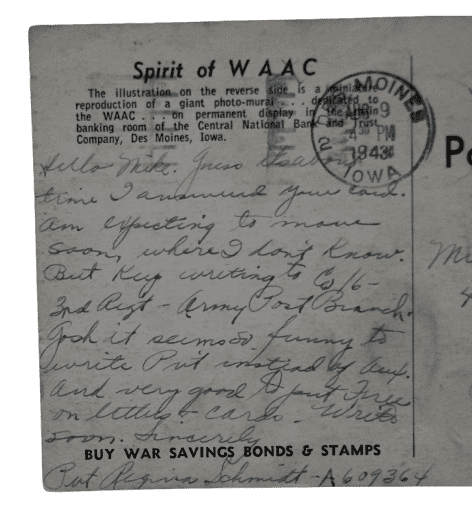 Spirit of WAAC
The illustration on the reverse side is a miniature
reproduction of a giant photo-mural . . . dedicated to
the WAAC . . . on permanent display in the main
banking room of the Central National Bank and Trust
Company, Des Moines, Iowa.
DES MOINES
APR 9
4 30 PM
1943
IOWA
Po
Hello Mike. Guess its about
time I answered your card.
Am expecting to move
soon, where I don't know.
But Keep writing to Co 16-
3rd Regt - Army Post Branch.
Gosh it seems so funny to
write Pvt instead of Aux.
And very good to put Free
on letters + cards - Write
soon. Sincerely
BUY WAR SAVINGS BONDS & STAMPS
Pvt Regina Schmidt - A609364